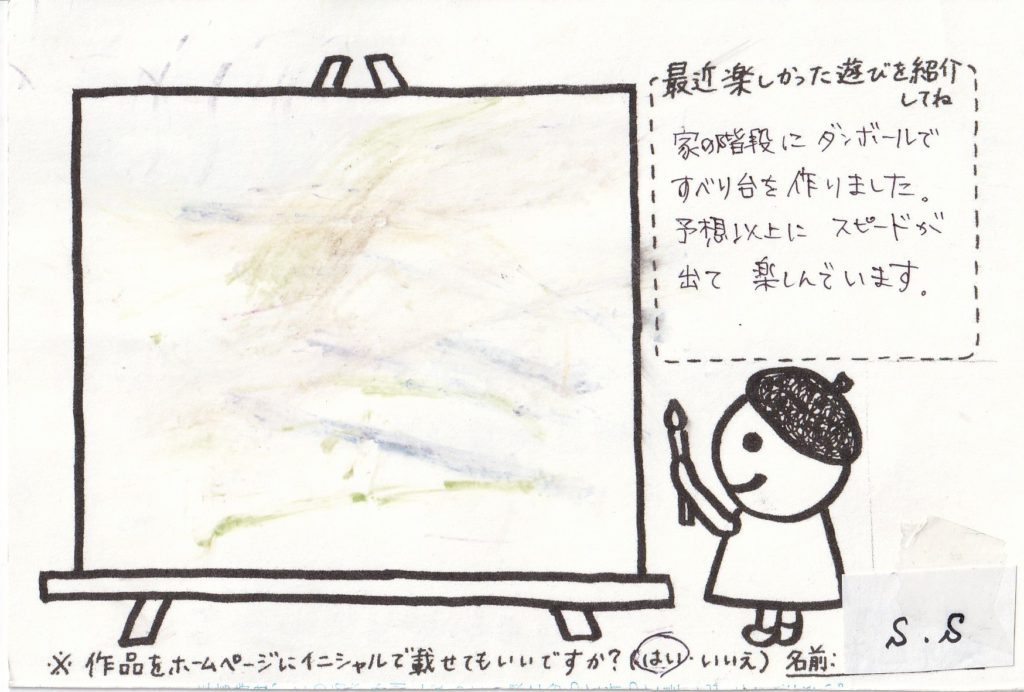 最近楽しかった遊びを紹介
してね
家の階段にダンボールで
すべり台を作りました。
予想以上にスピードが
出て 楽しんでいます。
※ 作品をホームページにイニシャルで載せてもいいですか?(はい・いいえ) 名前:
S.S